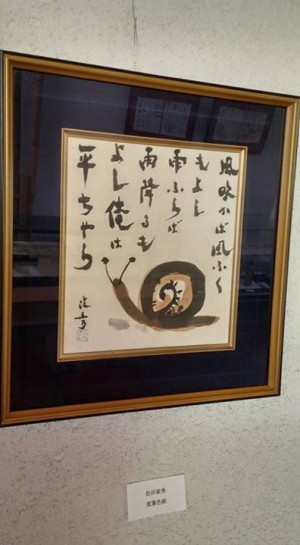 風吹かば風ふく
もよし
雨ふらば
雨降るも
よし俺は
平ちやら
直筆色紙